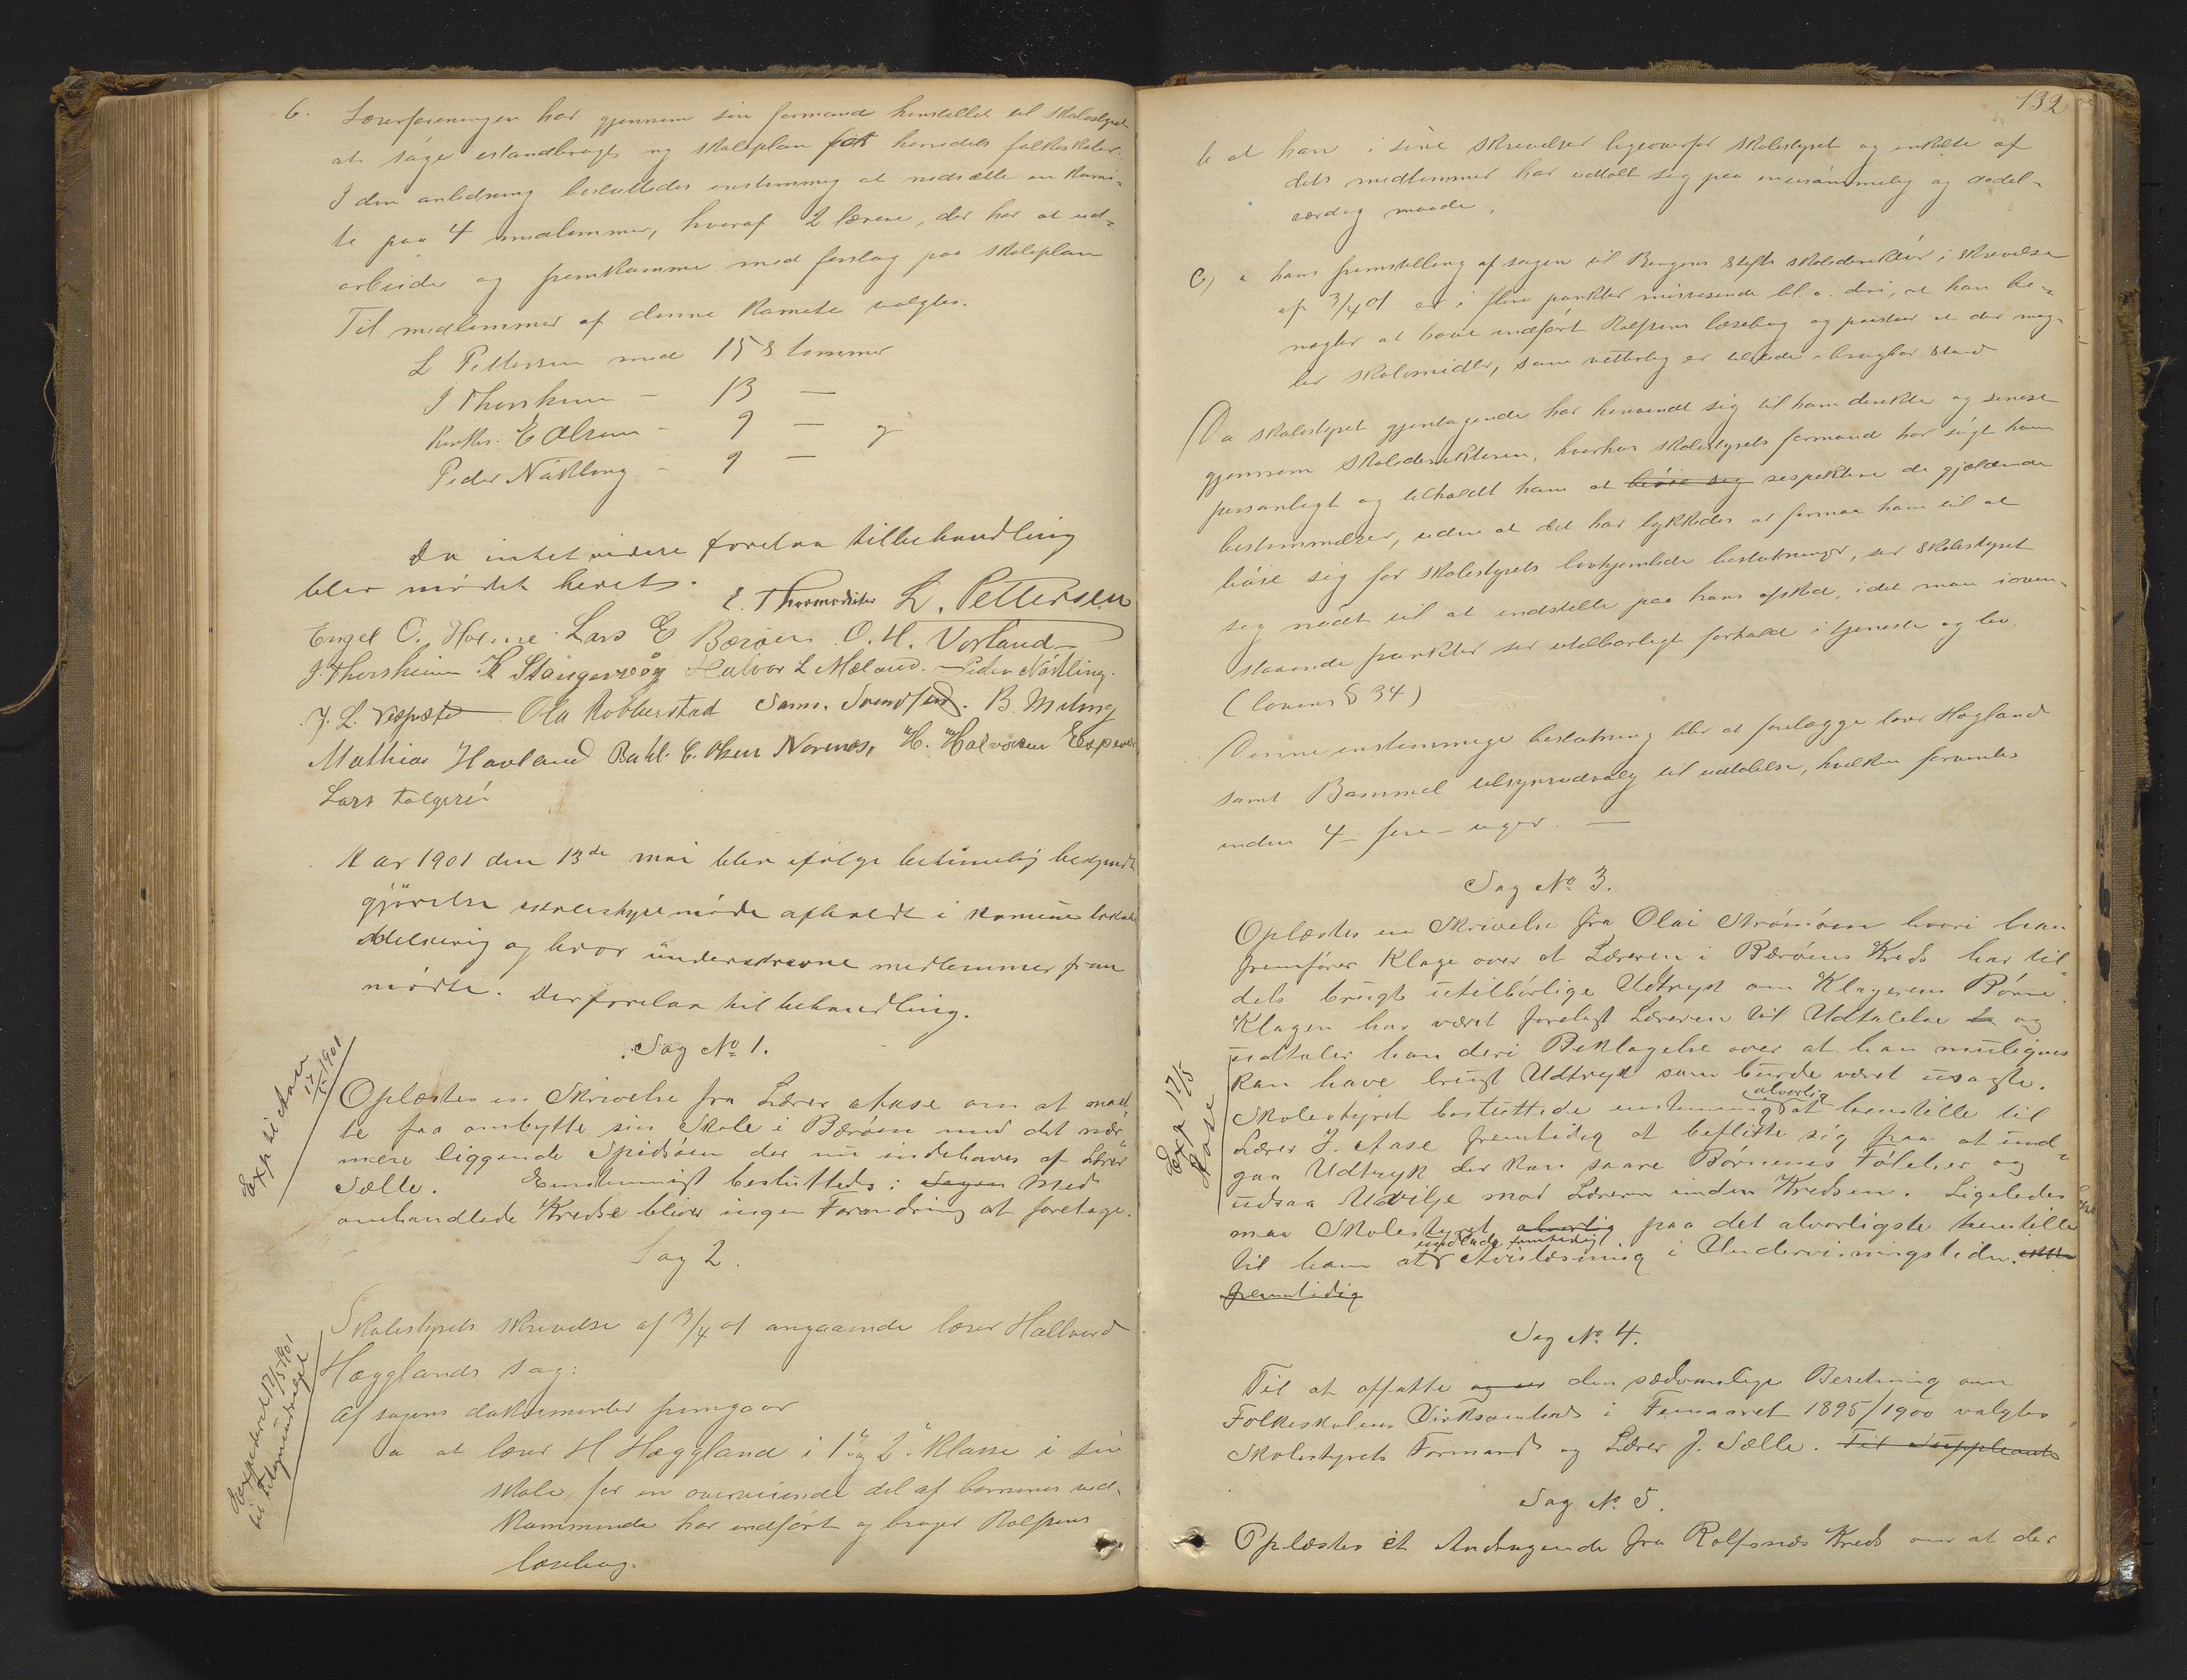 6. Lærerforeningen har gjennem sin formand henstillet til skolestyret
at søge istandbragt ny skoleplan for herredets folkeskoler.
I den anledning besluttedes enstemmig at nedsætte en komi-
te paa 4 medlemmer, hvoraf 2 lærere, der har at ud-
arbeide og fremkomme med forslag paa skoleplan
Til medlemmer af denne komite valgtes.
L Pettersen med 15 stemmer
J Thorsheim - 13 -
Kirkes. E Olsen - 9 -
Peder Nökling - 9 -
Da intet videre forelaa tilbehandling
blev mödet hevet.
E. Thormodsæter L. Pettersen
Engel O. Holme Lars E Børøen O. H. Vorland
J. Thorsheim K Stangervåg Halvor L Mæland. Peder Nökling.
J. L. Vespestad Ola Robberstad Sams. Svendsen. B. Meling
Mathias Havland Bahl. E. Olsen Norenes, H. Halvorsen Espevær
Lars Folgerö
Aar 1901 den 13de mai blev ifølge betimelig bekjendt
gjörelse skolestyremöde afholdt i komune lokalet
Mælsevig og hvor underskrevne medlemmer frem
mödte. Der forelaa til behandling.
Sag No 1.
Exp til Aase 17/5 1901
Oplæstes en Skrivelse fra Lærer Aase om at maat
te faa ombytte sin Skole i Børøen med det nær
mere liggende Spidsøen der nu indehaves af Lærer
Sælle. Enstemmigt besluttedes: Sagen Med
omhandlede Kredse bliver ingen Forandring at foretage.
Sag 2.
Skolestyrets skrivelse af 3/4 01 angaaende lærer Hallvard
Hægglands sag:
Expederet 17/5 1901
til tilsynsudvalget
Af sagens dokumenter fremgaar
a at lærer H Hæggland i 1 og 2 klasse i sin
skole, for en overveiende del af börnenes ved-
kommende har indført og bruger Rolfsens
læsebog.
132
b at han i sine skrivelser ligeoverfor skolestyret og enkelte af
dets medlemmer har udtalt sig paa en usömmelig og dadel-
værdig maade.
C) a hans fremstilling af sagen til Bergens Stifts skoledirektör i skrivelse
af 3/4 01 er i flere punkter misvisende bl. a. deri, at han be-
nægter at have indført Rolfsens læsebog og paastaar at der mag-
ler skolemidler, som vitterlig er tilstede i brugbar stand
Da skolestyret gjentagende har henvendt sig til ham direkte og senest
gjennem skoledirektören, hvorhos skolestyrets formand har søgt ham
personligt og tilholdt ham at böie sig respektere de gjældende
bestemmelser, uden at det har lykkedes at formaa ham til at
böie sig for skolestyrets lovhjemlede beslutninger, ser skolestyret
sig nödt til at indstille paa hans afsked, idet man i oven-
staaende punkter ser utilbørligt forhold i tjeneste og lov.
(lovens § 34)
Denne enstemmige beslutning blir at forelægge lærer Hægland
samt Bømmel tilsynsudvalg til udtalelse, hvilken forventes
inden 4 - fire - uger. —
Sag No 3.
Oplæstes en Skrivelse fra Olai Strömöen hvori han
fremfører Klage over at Læreren i Børøens Kreds har til-
dels brugt utilbørlige Udtryk om Klagerens Børn.
Klagen har været forelagt Læreren til Udtalelse og
udtaler han deri Beklagelse over at han muligens
kan have brugt Udtryk som burde været usagte.
Exp 17/5
Aase
Skolestyret besluttede enstemmig at alvorlig henstille til
Lærer J. Aase fremtidig at beflitte sig paa at und-
gaa Udtryk der kan saare Børnenes Følelser og
udsaa Uvilje mod Læreren inden Kredsen. Ligeledes
maa Skolestyret alvorlig paa det alvorligste henstille
til ham at undlade fremtidig Avislæsning i Undervisningstiden.
fremtidig
Sag No 4.
Til at affatte den sædvanelige Beretning om
Folkeskolens Virksomhed i Femaaret 1895/1900 valgtes
Skolestyrets Formand og Lærer J. Sælle. Til Suppleant
Sag No 5.
Oplæstes et Andragende fra Rolfsnæs Kreds om at der